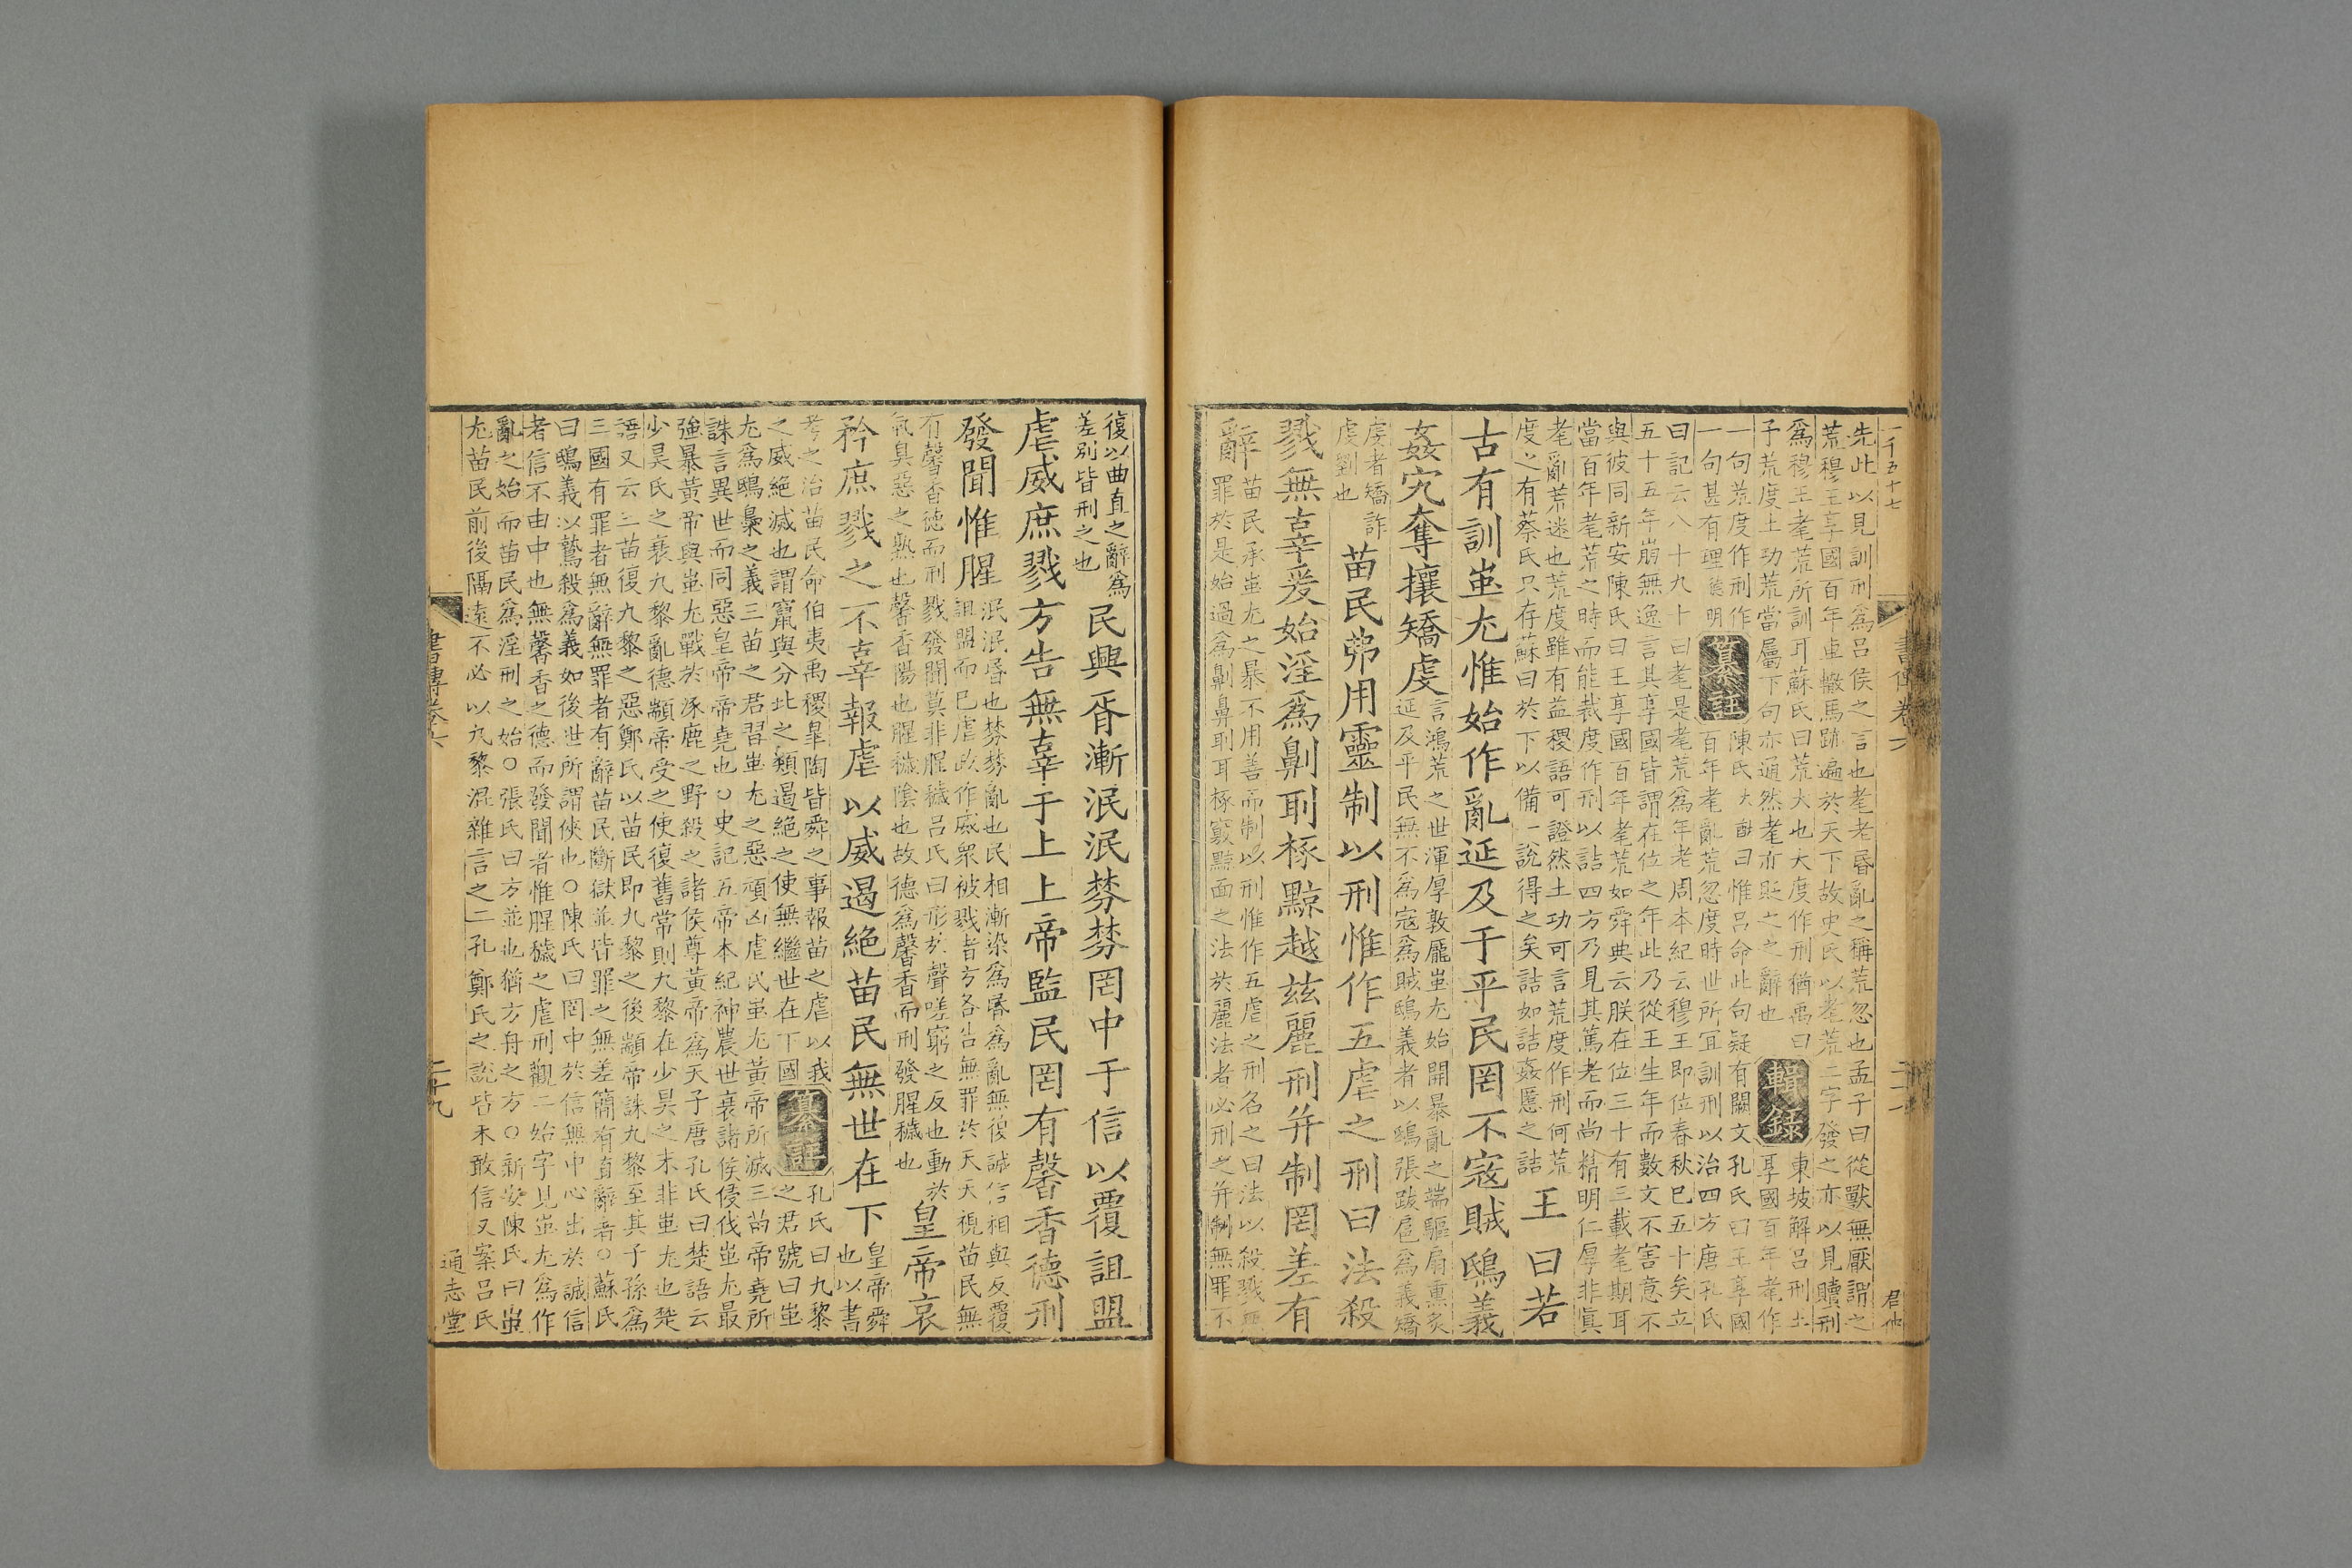 一千五十七
書傳卷六
君仲
先此以見訓刑爲呂侯之言也耄老昏亂之稱荒忽也孟子曰從獸無厭謂之
荒穆王享國百年車轍馬跡遍於天下故史氏以耄荒二字發之亦以見贖刑
爲穆王耄荒所訓耳蘇氏曰荒大也大度作刑猶禹曰
予荒度土功荒當屬下句亦通然耄亦貶之之辭也
輯錄
東坡解呂刑王
享國百年耄作
一句荒度作刑作
一句甚有理
明
纂註
陳氏大猷曰惟呂命此句疑有闕文孔氏曰王享國
百年耄亂荒忽度時世所宜訓刑以治四方唐孔氏
曰記云八十九十曰耄是耄荒爲年老周本紀云穆王即位春秋已五十矣立
五十五年崩無逸言其享國皆謂在位之年此乃從王生年而數文不害意不
與彼同新安陳氏曰王享國百年耄荒如舜典云朕在位三十有三載耄期耳
當百年耄荒之時而能裁度作刑以詰四方乃見其篤老而尚精明仁厚非眞
耄亂荒迷也荒度雖有益稷語可證然土功可言荒度作刑何荒
度之有蔡氏只存蘇曰於下以備一說得之矣詰如詰姦慝之詰
王曰若
古有訓蚩尤惟始作亂延及于平民罔不寇賊鴟義
姦宄奪攘矯虔
言鴻荒之世渾厚敦厖蚩尤始開暴亂之端驅扇熏炙
延及平民無不爲寇爲賊鴟義者以鴟張跋扈爲義矯
虔者矯詐
虔劉也
苗民弗用靈制以刑惟作五虐之刑曰法殺
戮無辜爰始淫爲劓刵椓黥越茲麗刑并制罔差有
辭
苗民承蚩尤之暴不用善而制以刑惟作五虐之刑名之曰法以殺戮無
罪於是始過爲劓鼻刵耳椓竅黥面之法於麗法者必刑之并制無罪不
復以曲直之辭爲
差別皆刑之也
民興胥漸泯泯棼棼罔中于信以覆詛盟
虐威庶戮方告無辜于上上帝監民罔有馨香德刑
發聞惟腥
泯泯昏也棼棼亂也民相漸染爲昏爲亂無復誠信相與反覆
詛盟而已虐政作威衆被戮者方各告無罪於天天視苗民無
有馨香德而刑戮發聞莫非腥穢呂氏曰形於聲嗟窮之反也動於
氣臭惡之熟也馨香陽也腥穢陰也故德爲馨香而刑發腥穢也
皇帝哀
矜庶戮之不辜報虐以威遏絕苗民無世在下
皇帝舜
也以書
考之治苗民命伯夷禹稷臯陶皆舜之事報苗之虐以我
之威絕滅也謂竄與分北之類遏絕之使無繼世在下國
纂註
孔氏曰九黎
之君號曰蚩
尤爲鴟梟之義三苗之君習蚩尤之惡頑凶虐民蚩尤黃帝所滅三苗帝堯所
誅言異世而同惡皇帝帝堯也○史記五帝本紀神農世衰諸侯侵伐蚩尤最
強暴黃帝與蚩尤戰於涿鹿之野殺之諸侯尊黃帝爲天子唐孔氏曰楚語云
少昊氏之衰九黎亂德顓帝受之使復舊常則九黎在少昊之末非蚩尤也楚
語又云三苗復九黎之惡鄭氏以苗民即九黎之後顓帝誅九黎至其子孫爲
三國有罪者無辭無罪者有辭苗民斷獄並皆罪之無差簡有直辭者○蘇氏
曰鴟義以鷙殺爲義如後世所謂俠也○陳氏曰罔中於信無中心出於誠信
者信不由中也無馨香之德而發聞者惟腥穢之虐刑觀二始字見蚩尤爲作
亂之始而苗民爲淫刑之始○張氏曰方並也猶方舟之方○新安陳氏曰蚩
尤苗民前後隔遠不必以九黎混雜言之二孔鄭氏之說皆未敢信又案呂氏
書傳卷六
二十九
通志堂